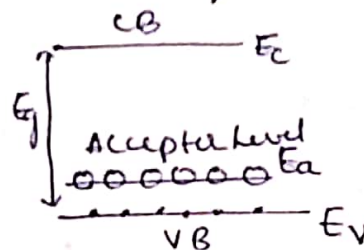 CB
Ec
Eg
Accepter Level
Ea
Ev
VB